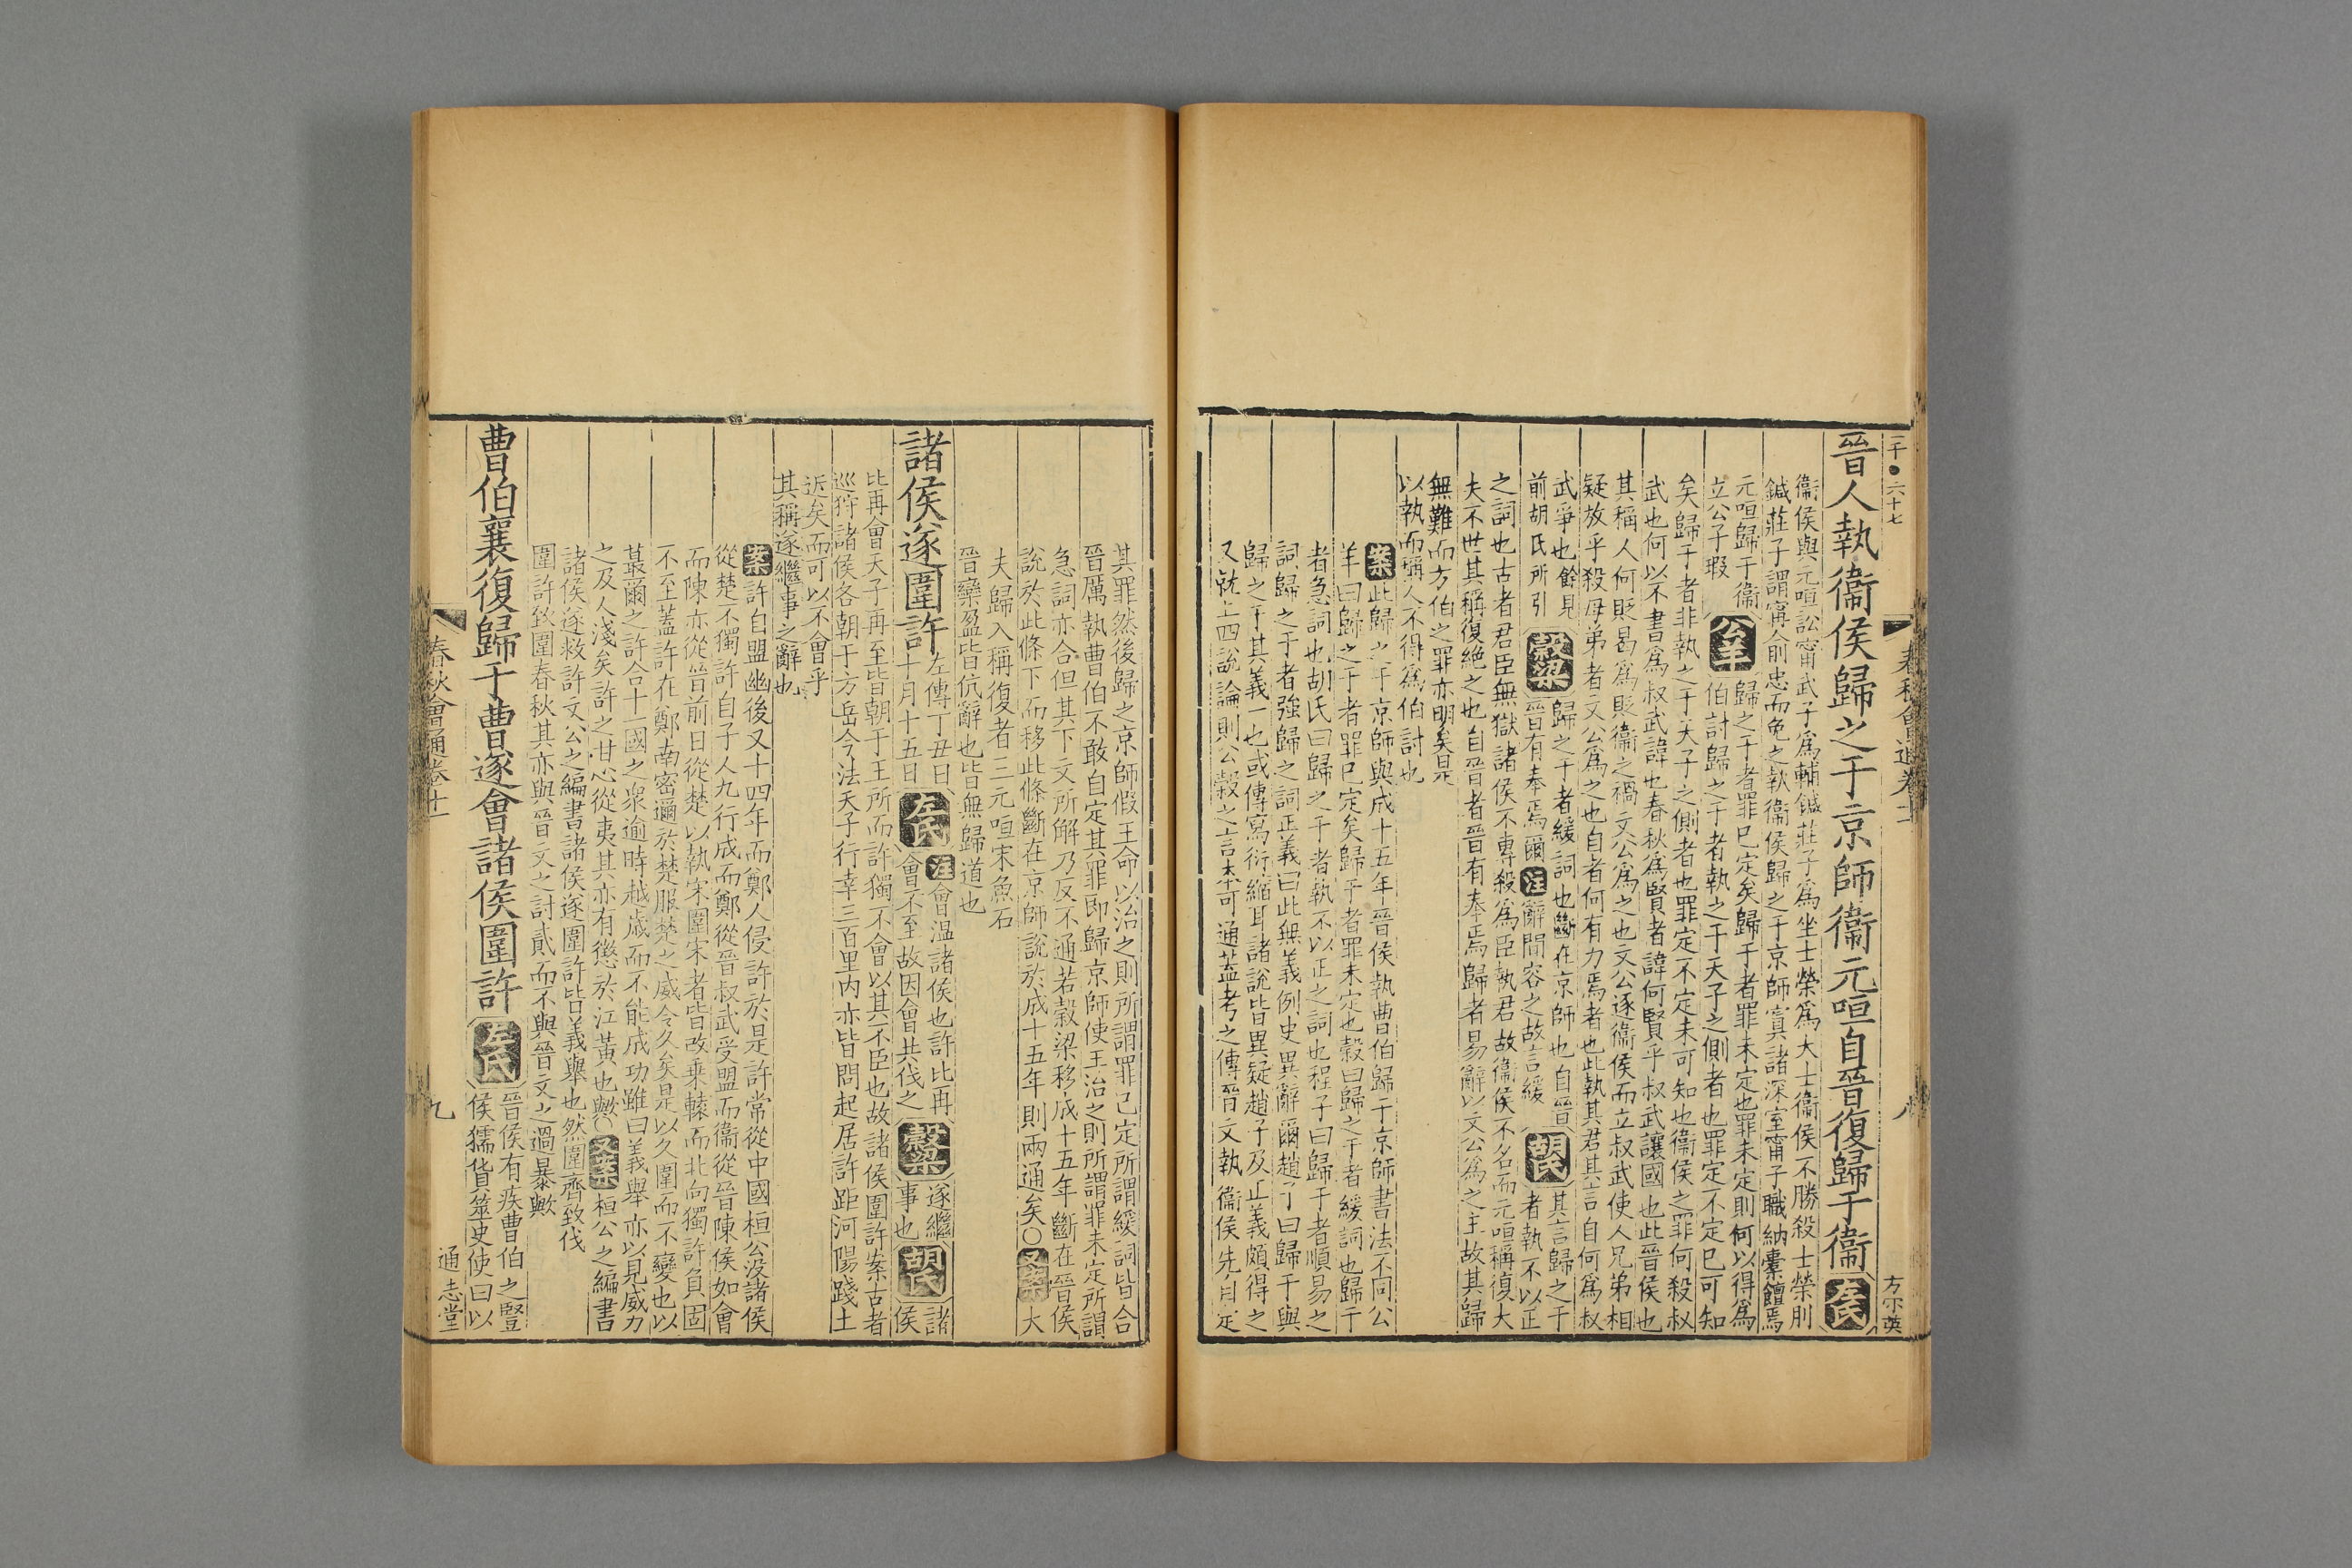 二千●六十七
春秋會通卷十一
八
方尓英
晉人執衞侯歸之于京師衞元咺自晉復歸于衞左氏
衞侯與元咺訟甯武子爲輔鍼莊子爲坐士榮爲大士衞侯不勝殺士榮刖
鍼莊子謂甯俞忠而免之執衞侯歸之于京師寘諸深室甯子職納橐饘焉
元咺歸于衞
立公子瑕
公羊
歸之于者罪已定矣歸于者罪未定也罪未定則何以得爲
伯討歸之于者執之于天子之側者也罪定不定已可知
矣歸于者非執之于天子之側者也罪定不定未可知也衞侯之罪何殺叔
武也何以不書爲叔武諱也春秋爲賢者諱何賢乎叔武讓國也此晉侯也
其稱人何貶曷爲貶衞之禍文公爲之也文公逐衞侯而立叔武使人兄弟相
疑放乎殺母弟者文公爲之也自者何有力焉者也此執其君其言自何爲叔
武爭也餘見
前胡氏所引
穀梁
歸之于者緩詞也斷在京師也自晉
晉有奉焉爾注辭間容之故言緩
胡氏
其言歸之于
者執不以正
之詞也古者君臣無獄諸侯不專殺爲臣執君故衞侯不名而元咺稱復大
夫不世其稱復絶之也自晉者晉有奉焉歸者易辭以文公爲之主故其歸
無難而方伯之罪亦明矣是
以執而稱人不得爲伯討也
案此歸之于京師與成十五年晉侯執曹伯歸于京師書法不同公
羊曰歸之于者罪已定矣歸于者罪未定也穀曰歸之于者緩詞也歸于
者急詞也胡氏曰歸之于者執不以正之詞也程子曰歸于者順易之
詞歸之于者強歸之詞正義曰此無義例史異辭爾趙子曰歸于與
歸之于其義一也或傳寫衍縮耳諸說皆異疑趙子及正義頗得之
又就上四說論則公穀之言本可通蓋考之傳晉文執衞侯先自定
其罪然後歸之京師假王命以治之則所謂罪已定所謂緩詞皆合
晉厲執曹伯不敢自定其罪即歸京師使王治之則所謂罪未定所謂
急詞亦合但其下文所解乃反不通若穀梁移成十五年斷在晉侯
說於此條下而移此條斷在京師說於成十五年則兩通矣〇又案大
夫歸入稱復者三元咺宋魚石
晉欒盈皆伉辭也皆無歸道也
諸侯遂圍許
左傳丁丑日
十月十五日
左氏
注會溫諸侯也許比再
會不至故因會共伐之
穀梁
遂繼
事也
胡氏
諸
侯
比再會天子再至皆朝于王所而許獨不會以其不臣也故諸侯圍許案古者
巡狩諸侯各朝于方岳今法天子行幸三百里內亦皆問起居許距河陽踐土
近矣而可以不會乎
其稱遂繼事之辭也
案許自盟幽後又十四年而鄭人侵許於是許常從中國桓公没諸侯
從楚不獨許自子人九行成而鄭從晉叔武受盟而衞從晉陳侯如會
而陳亦從晉前日從楚以執宋圍宋者皆改乗轅而北向獨許負固
不至蓋許在鄭南密邇於楚服楚之威令久矣是以久圍而不變也以
蕞爾之許合十一國之衆逾時越歲而不能成功雖曰義舉亦以見威力
之及人淺矣許之甘心從夷其亦有懲於江黃也歟〇又案桓公之編書
諸侯遂救許文公之編書諸侯遂圍許皆曰義舉也然圍齊致伐
圍許致圍春秋其亦與晉文之討貳而不與晉文之過暴歟
曹伯襄復歸于曹遂會諸侯圍許左氏
晉侯有疾曹伯之豎
侯獳貨筮史使曰以
春秋會通卷十一
九
通志堂